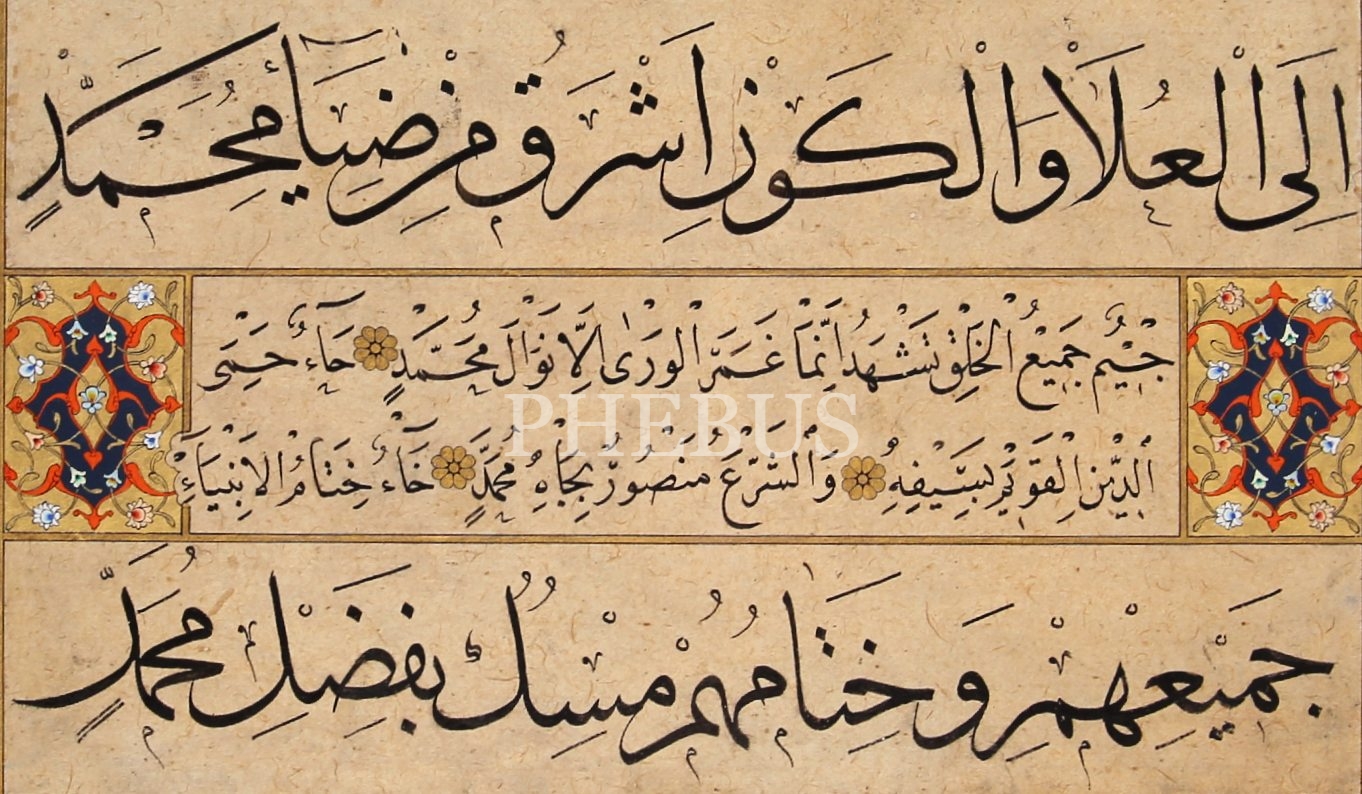 اِلَى الْعُلَا وَالْكَوْنِ اَشْرَقَ مِنْ ضِيَاءِ مُحَمَّدٍ
جِيْمُ جَمِيْعُ الْخَلْقِ تَشْهَدُ اِنَّمَا غَمَرَ الْوَرٰى اِلَّا نَوَالَ مُحَمَّدٍ حَاءُ حِمَى
الدِّيْنِ الْقَوِيْمِ بِسَيْفِهِ وَالشَّرْعُ مَنْصُوْرٌ بِجَاهِ مُحَمَّدٍ خَاءُ خِتَامُ الْاَنْبِيَاءِ
PHEBUS
جَمِيْعِهِمْ وَخِتَامُهُمْ مِسْكٌ بِفَضْلِ مُحَمَّدٍ